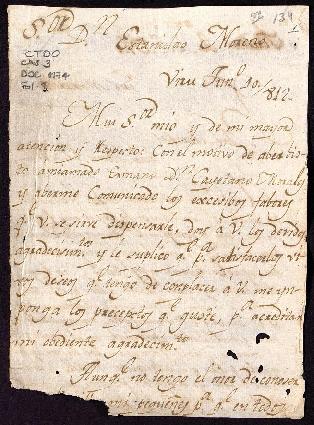 S.or D.n
Estanislao Moreno
134
1
CTDO
CAJ 3
DOC 1174
Fol 1
Mui S.or mio y de mi mayor
atencion y Respeto: Con el motivo de aber bis
to amiamado Ermano D.n Cayetano Morales
y aberme Comunicado los excesibos fabores
q.e V. se sirve dispensarle, doy á V. los devidos
agradecim.tos y le suplico q.e p.a satisfacer los vi
vos deseos q.e tengo de complacer á V. me im
ponga los preceptos q.e guste, p.a acreditar
mi obediente agradecim.to
Aunq.e no tengo el onor de conoser
mi pequeñes p.a q.e en todo